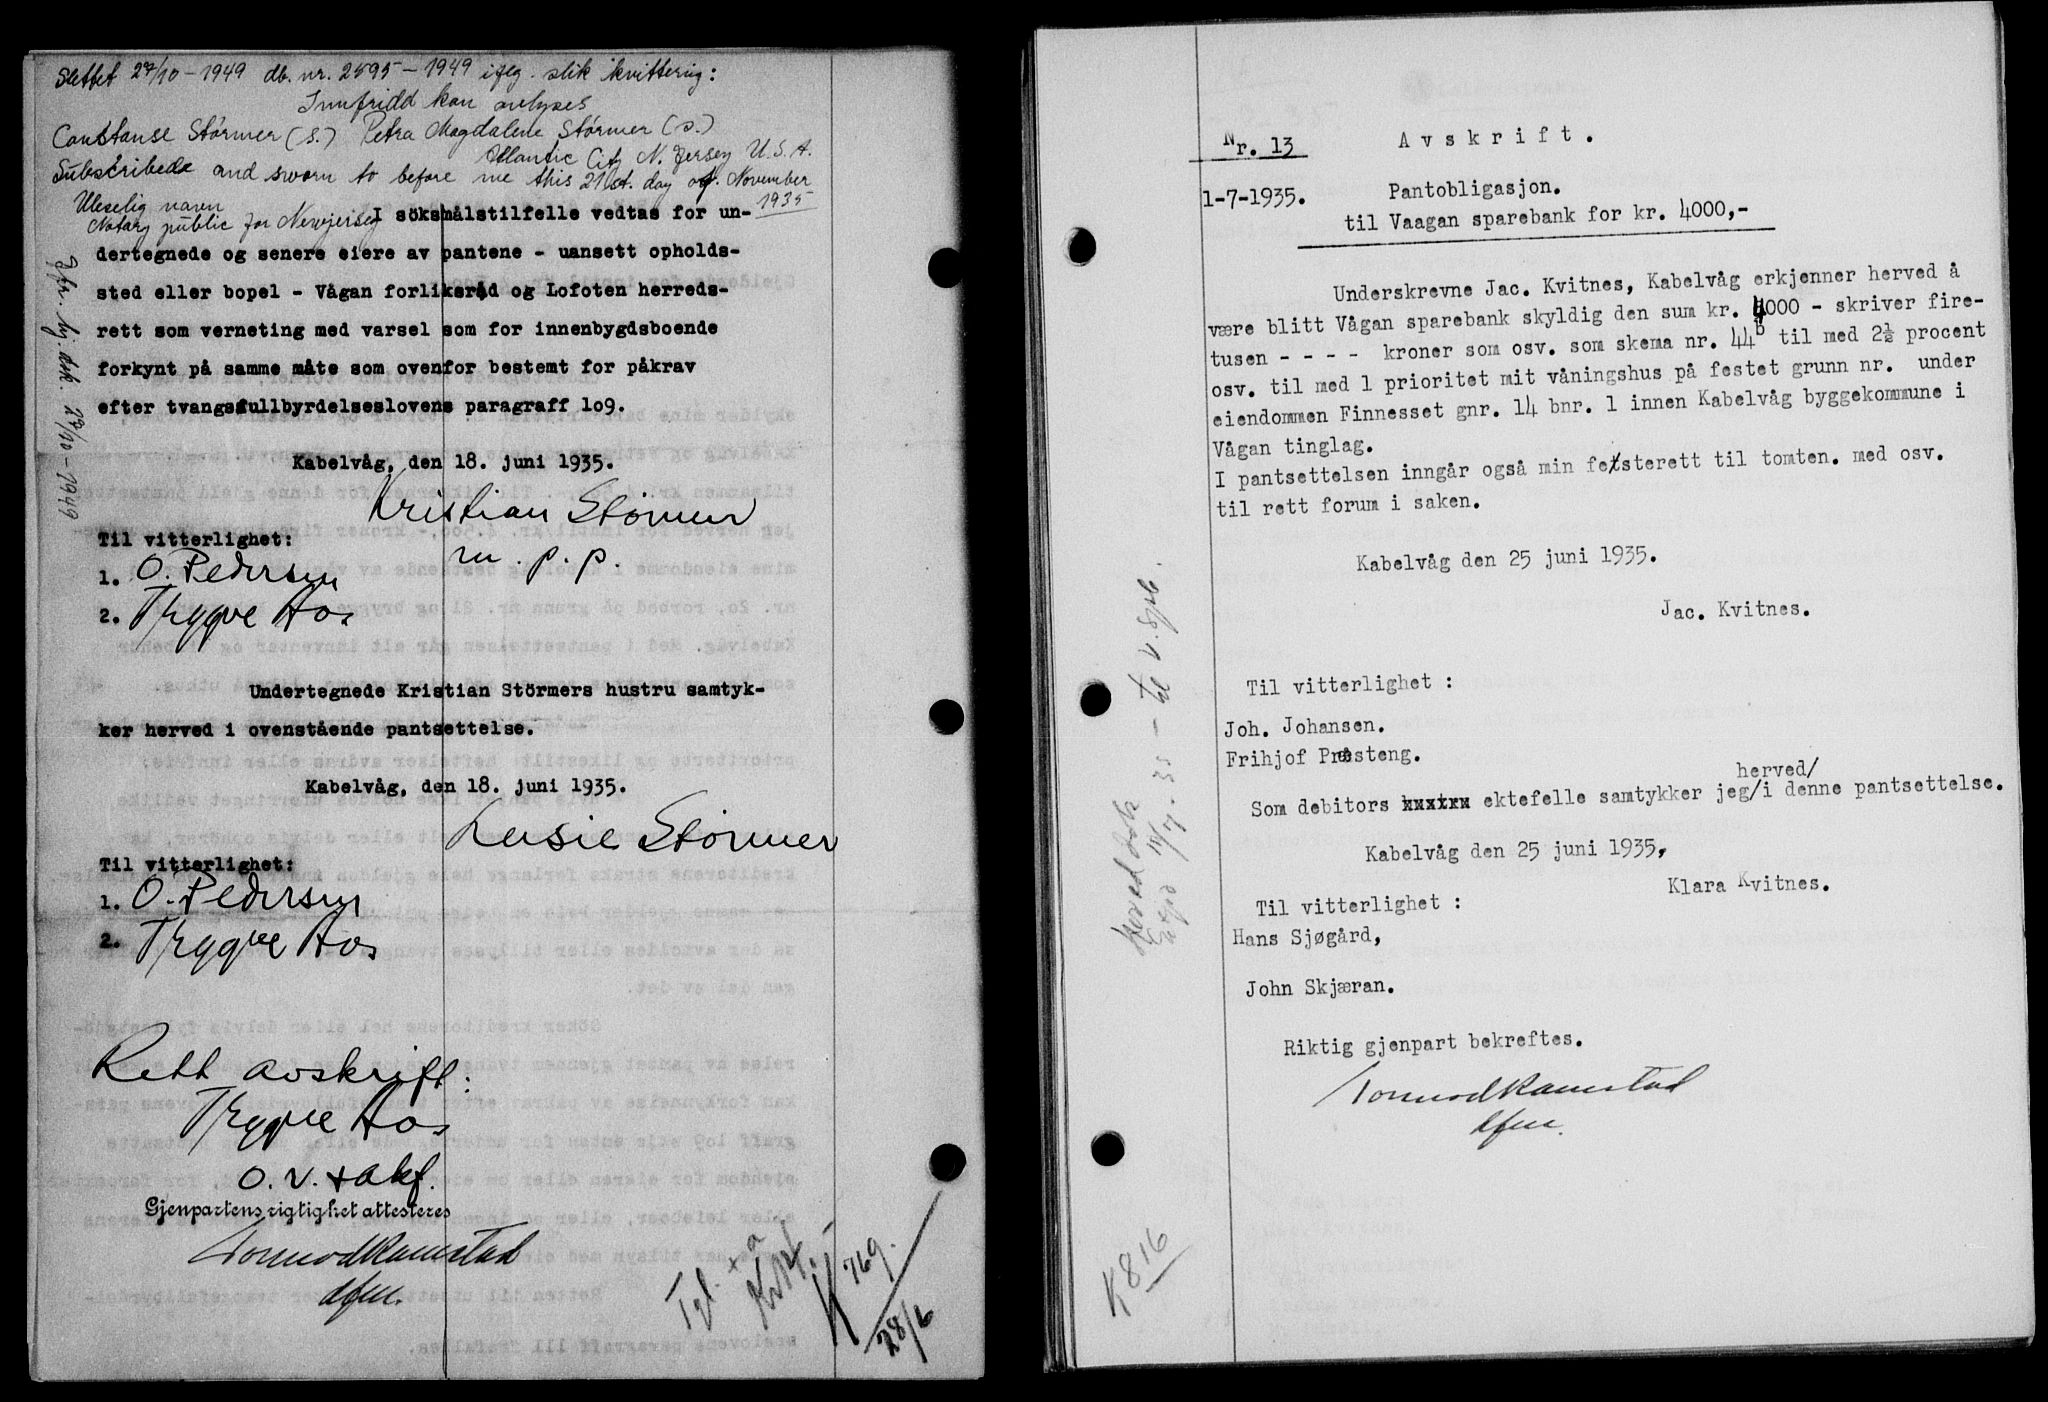 Slettet 27/10-1949 db. nr. 2595-1949 iflg. slik kvittering:
Innfridd kan avlyses
Constanse Störmer (s.) Petra Magdalene Störmer (s.)
Atlantic City N. Jersey U.S.A.
Subscribede and sworn to before me this 21st. day of November
1935
Uleselig navn
Notary public for Newjersey
I söksmålstilfelle vedtas for un-
dertegnede og senere eiere av pantene - uansett opholds-
sted eller bopel - Vågan forliksråd og Lofoten herreds-
rett som verneting med varsel som for innenbygdsboende
forkynt på samme måte som ovenfor bestemt for påkrav
efter tvangsfullbyrdelseslovens paragraff 109.
Jfr. hj. dok. 27/10-1949
Kabelvåg, den 18. juni 1935.
Kristian Störmer
m. p. p.
Til vitterlighet:
1. O. Pedersen
2. Trygve Aas
Undertegnede Kristian Störmers hustru samtyk-
ker herved i ovenstående pantsettelse.
Kabelvåg, den 18. juni 1935.
Lusie Störmer
Til vitterlighet:
1. O. Pedersen
2. Trygve Aas
Rett avskrift:
Trygve Aas
o. r. sakf.
Gjenpartens rigtighet attesteres
Tormod Ramstad
dfm.
Tgl.
769.
28/6
Nr. 13
Avskrift.
1-7-1935.
Pantobligasjon.
til Vaagan sparebank for kr. 4000,-
Underskrevne Jac. Kvitnes, Kabelvåg erkjenner herved å
være blitt Vågan sparebank skyldig den sum kr. 4000 - skriver fire-
tusen - - - - kroner som osv. som skema nr. 44b til med 2½ procent
osv. til med 1 prioritet mit våningshus på festet grunn nr. under
eiendommen Finnesset gnr. 14 bnr. 1 innen Kabelvåg byggekommune i
Vågan tinglag.
I pantsettelsen inngår også min festerett til tomten. med osv.
til rett forum i saken.
Kabelvåg den 25 juni 1935.
Jac. Kvitnes.
Til vitterlighet :
Joh. Johansen.
Frihjof Præsteng.
herved/
Som debitors xxxxxx ektefelle samtykker jeg/i denne pantsettelse.
Kabelvåg den 25 juni 1935,
Klara Kvitnes.
Til vitterlighet :
Hans Sjøgård,
John Skjæran.
Riktig gjenpart bekreftes.
Tormod Ramstad
dfm.
K 816